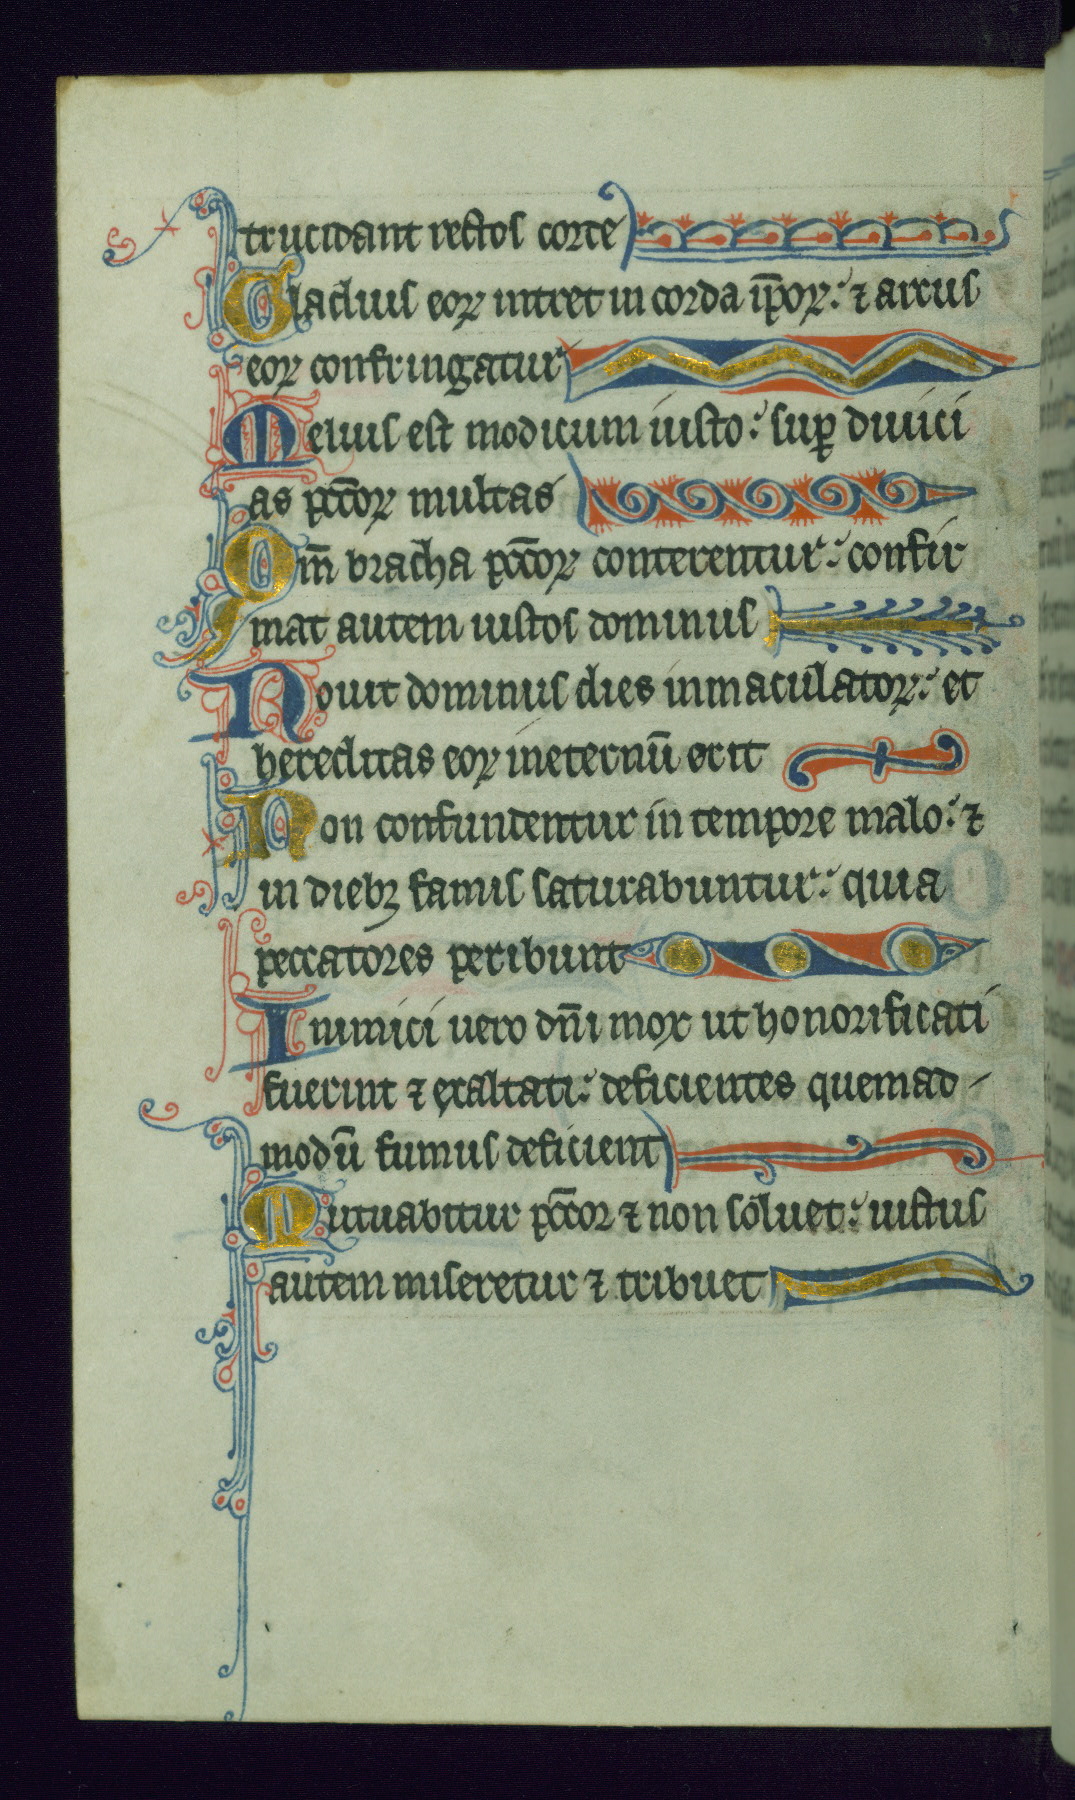 trucidant rectos corde
Gladius eoꝝ intret in corda ip̄oꝝ: ⁊ arcus
eoꝝ confringatur
Melius est modicum iusto: sup̱ diuici
as pcc̄oꝝ multas
Qm̄ brachia pcc̄oꝝ conterentur: confir
mat autem iustos dominus
Nouit dominus dies inmaculatoꝝ: et
hereditas eoꝝ ineternū erit
Non confundentur in tempore malo: ⁊
in diebꝫ famis saturabuntur: quia
peccatores peribunt
Inimici uero dn̄i mox ut honorificati
fuerint ⁊ exaltati: deficientes quemad-
modū fumus deficient
Mutuabitur pcc̄or ⁊ non soluet: iustus
autem miseretur ⁊ tribuet